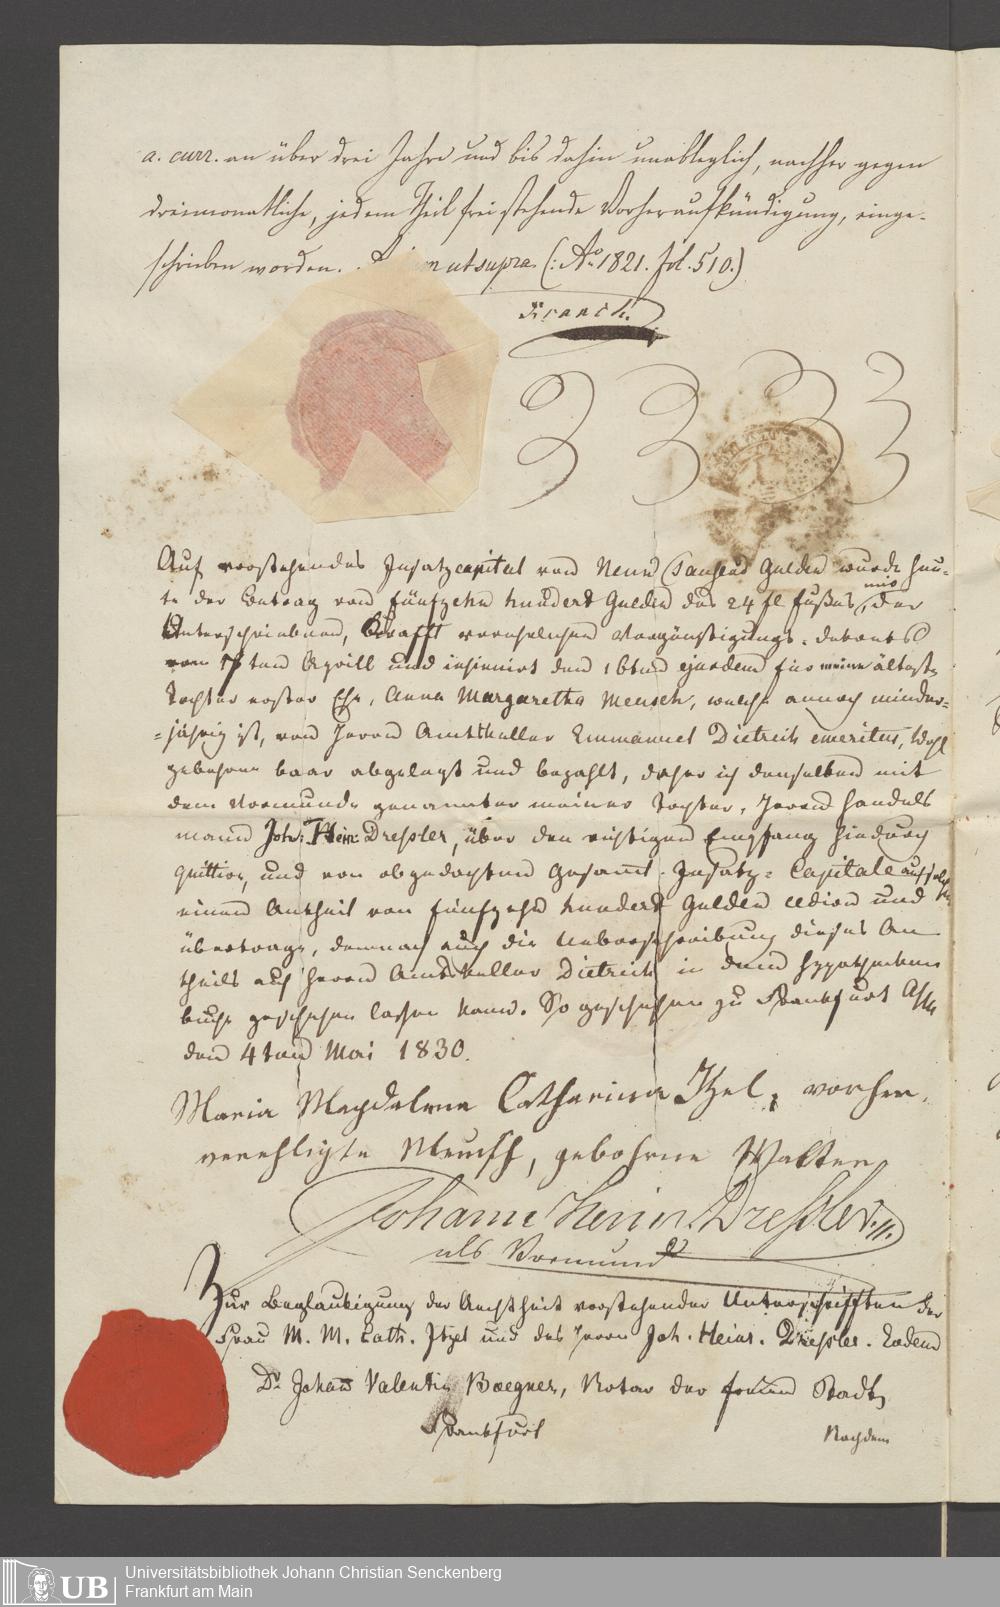 a. curr. an über drei Jahre und bis dahin unableglich, nachher gegen
dreimonatliche, jedem Theil frei stehende Vorheraufkündigung, einge-
schrieben worden. utsupra (: Ao. 1821. fol. 510.)
3 3 3 3
Auf vorstehendes Insatzcapital von Neun Tausend Gulden wurde heu-
te der Betrag von fünfzehn hundert Gulden des 24 fl fußes, mir der
Unterschriebenen, Krafft verehrlichen Vergünstigungs-Decrets
vom ten Aprill und insinuirt den 16ten ejusdem für meine älteste
Tochter erster Ehe, Anna Margaretha Mensch, welche annoch minder-
=jährig ist, von Herrn Amtskeller Emmanuel Dietrich emeritus, Wohl
gebohren baar abgelegt und bezahlt, daher ich denselben mit
dem Vormunde genannter meiner Tochter, Herrn Handels
mann Joh: Hein: Dreßler, über den richtigen Empfang hiedurch
quittire, und von obgedachtem Gesamt-Insatz-Capitale auf solchen
einen Antheil von fünfzehn hundert Gulden cedire und
übertrage, demnach auch die Ueberschreibung dieses An
theils auf Herrn Amtskeller Dietrich in dem Hypotheken
buche geschehen lassen kann. So geschehen zu Frankfurt a/M
den 4ten Mai 1830.
Maria Magdalena Catharina Itzel, vorher
verehligte Mensch, gebohrne Walter
Johann Heinr. Dreßler
als Vormund
Zur Beglaubigung der Aechtheit vorstehender Unterschrifften der
Frau M. M. Cath. Itzel und des Herrn Joh. Heinr. Dreßler. Eodem
Dr. Johann Valentin Boegner, Notar der freien Stadt
Frankfurt
Nachdem
UB
Universitätsbibliothek Johann Christian Senckenberg
Frankfurt am Main